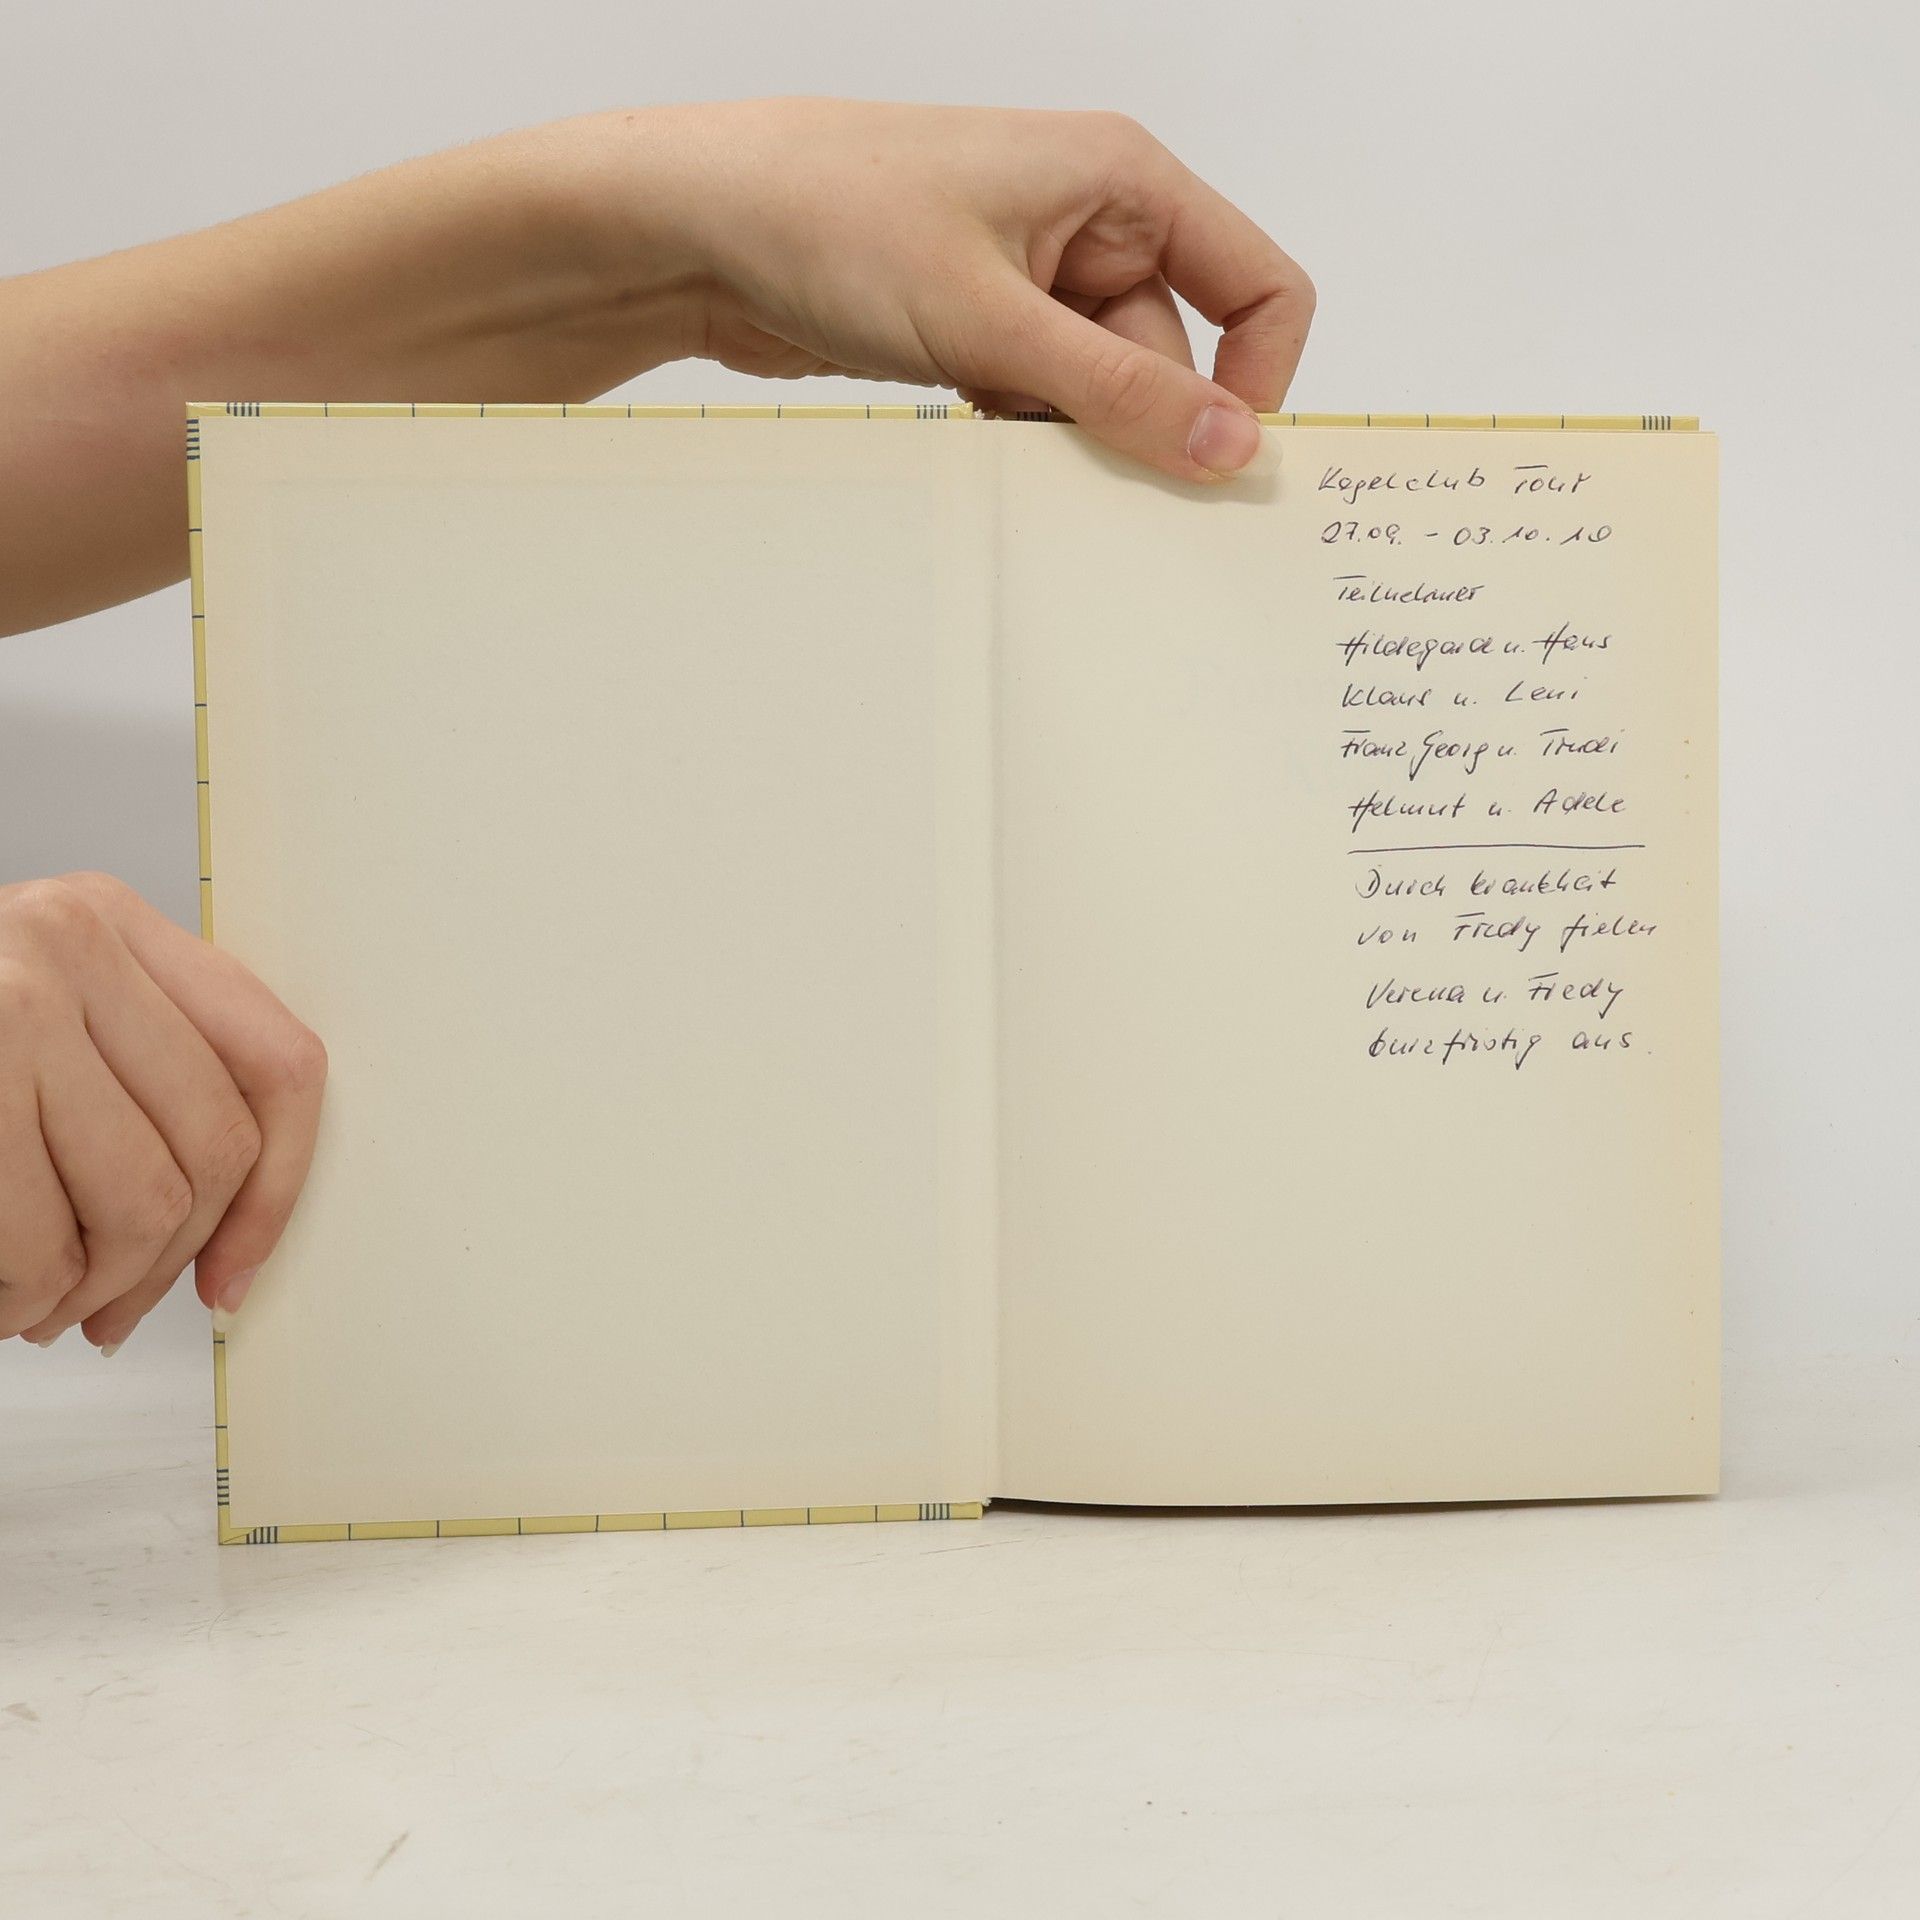 Kegelclub Tour
27.09. - 03.10.10
Teilnehmer
Hildegard u. Hans
Klaus u. Leni
Franz, Georg u. Trudi
Helmut u. Adele
Durch krankheit
von Fredy fielen
Verena u. Fredy
kurzfristig aus.